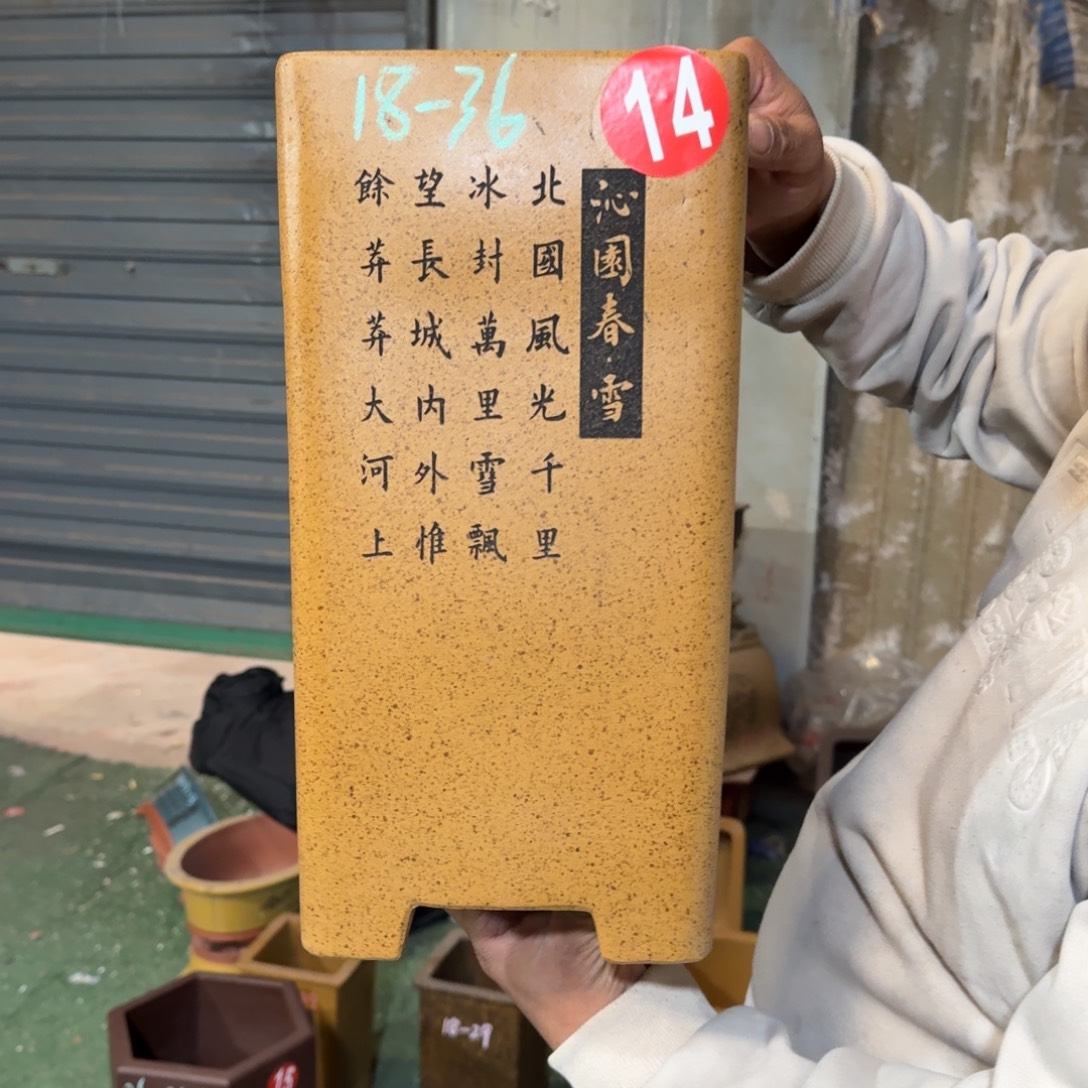 18-36
14
沁園春·雪
北國風光千里
冰封萬里雪飄
望長城内外惟
餘莽莽大河上
18-29
15